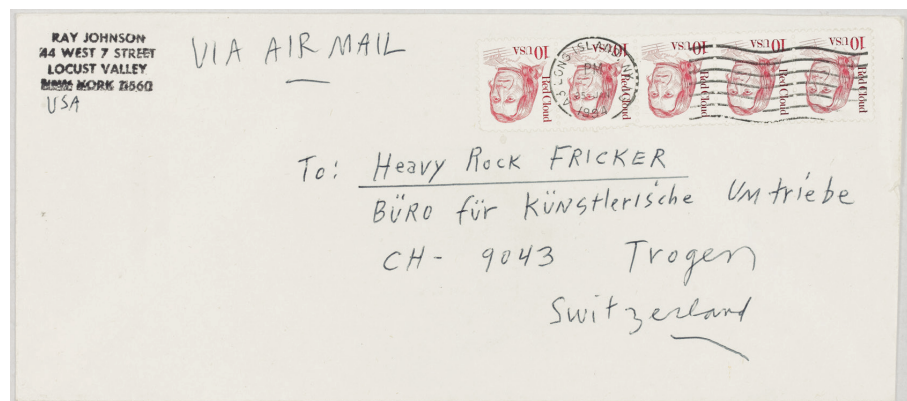 RAY JOHNSON
44 WEST 7 STREET
LOCUST VALLEY
NEW YORK 11560
USA
VIA AIR MAIL
10 USA Red Cloud
10 USA Red Cloud
10 USA Red Cloud
10 USA Red Cloud
10 USA Red Cloud
LONG ISLAND, NY
PM
To: Heavy Rock FRICKER
BÜRO für KÜNstlerische UMtriebe
CH- 9043 Trogen
Switzerland